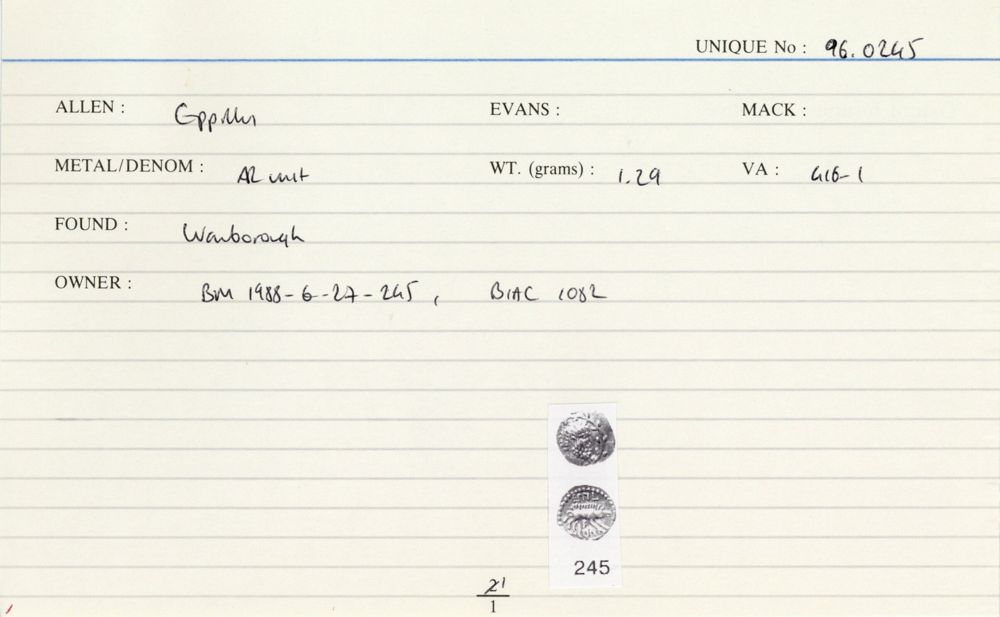 UNIQUE No : 96.0245
ALLEN : Eppillus EVANS : MACK :
METAL/DENOM : AR unit WT. (grams) : 1.29 VA : 416-1
FOUND : Wanborough
OWNER : BM 1988-6-27-245, BMC 1082
245
1
1